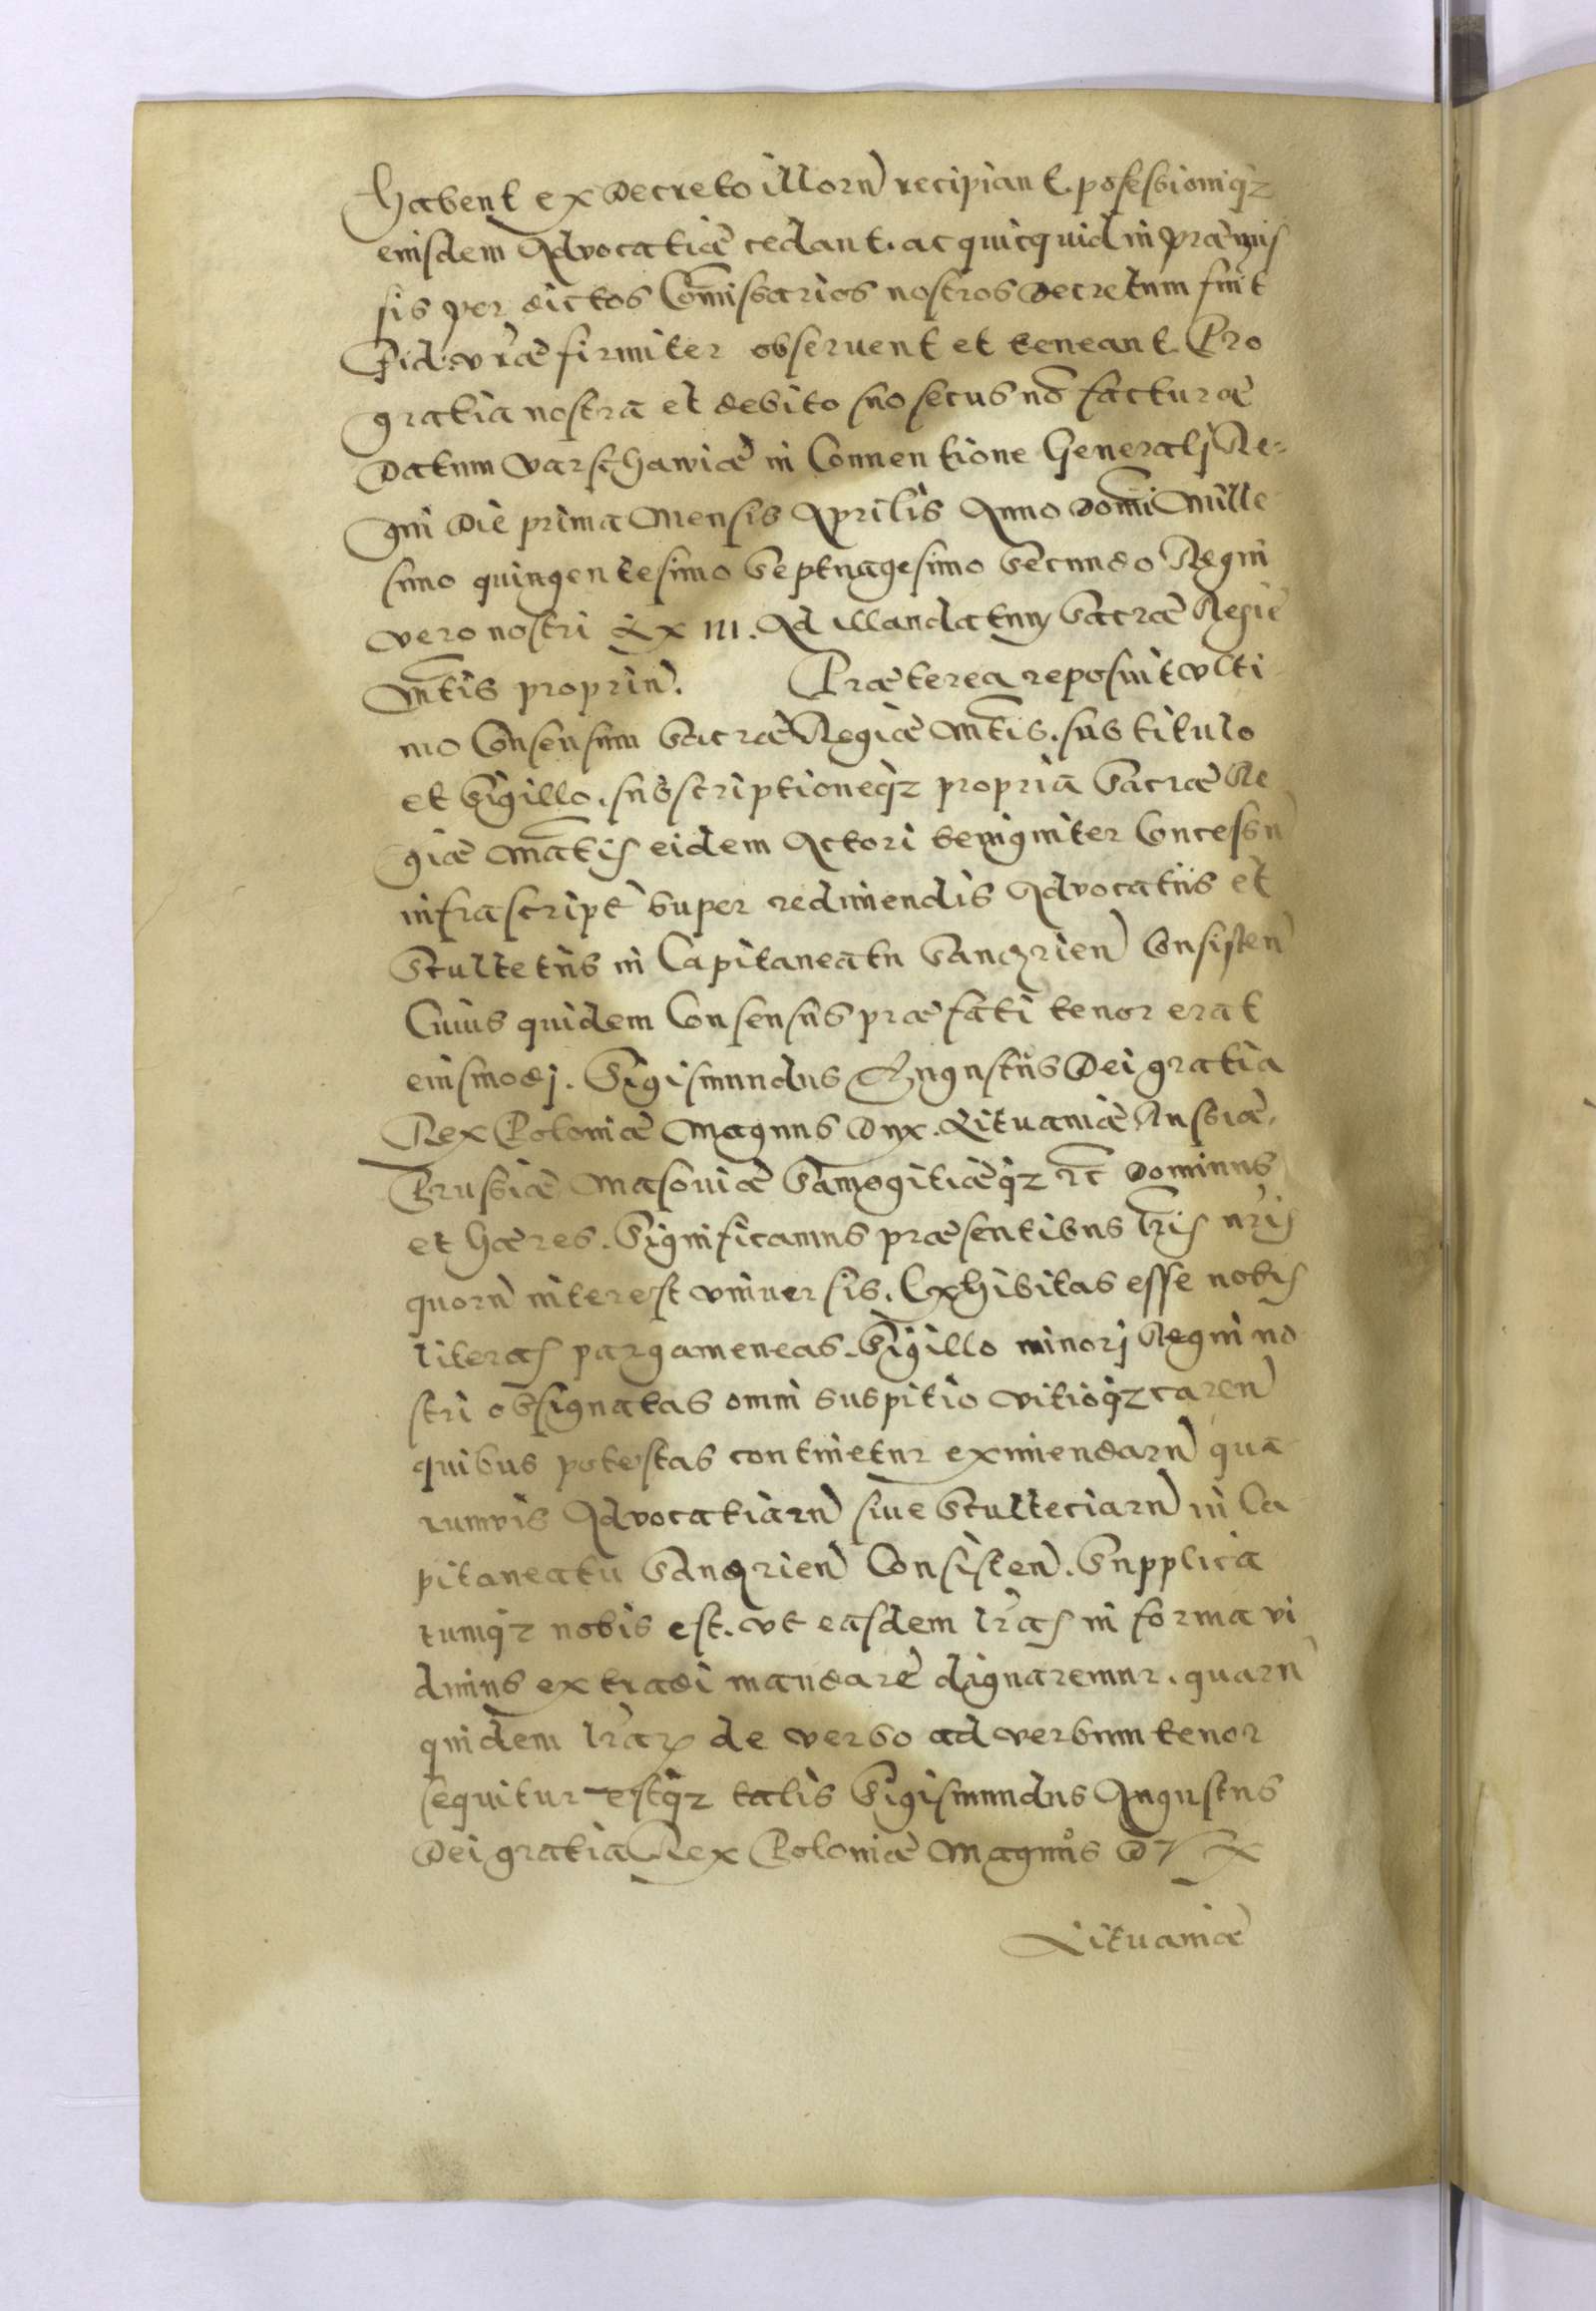 habent ex Decreto illorũ recipiant. possessioniq́z
eiusdem Advocatiæ cedant. ac quicquid in præmis
sis per dictos Com̃issarios nostros Decretum fuit
Fid: vr̃æ firmiter obseruent et teneant. Pro
gratia nostra et debito suo secus nõ facturæ
Datum Varschaviæ in Conuentione Generalj Re=
gni Die prima Mensis Aprilis Anno Domĩ Mille
simo quingentesimo Septuagesimo Secundo Regni
vero nostri XLIII. Ad Mandatum Sacræ Regiæ
Mt̃is propriũ. Præterea reposuit vlti
mo Consensum Sacræ Regiæ Mt̃is. sub titulo
et Sigillo. subscriptioneq́z propria Sacræ Re
giæ Matĩs eidem Actori benigniter Concessũ
infrascript̀ super redimendis Advocatiis et
Scultetiis in Capitaneatu Sandzrieñ Consisteñ
Cuius quidem Consensus præfati tenor erat
eiusmodj. Sigismundus Augustus Dei gratia
Rex Poloniæ Magnus Dux. Lituaniæ Russiæ.
Prussiæ Masouiæ Samogitiæq́z rc̃ Dominus
et hæres. Significamus præsentibus lr̃is nr̃is
quorũ interest vniuersis. Exhibitas esse nobis
literas pargameneas. Sigillo minorj Regni no
stri obsignatas omni suspitio vitioq́z careñ
quibus potestas continetur eximendarũ qua
rumvis Advocatiarũ siue Scultetiarũ in Ca
pitaneatu Sandzrieñ Consisteñ. Supplica
tumq́z nobis est. vt easdem lr̃as in forma vi
dimus extradi mandare dignaremur. quarũ
quidem lr̃arũ de verbo ad verbum tenor
sequitur estq́z talis Sigismundus Augustus
Dei gratia Rex Poloniæ Magnus DVX
Lituaniæ